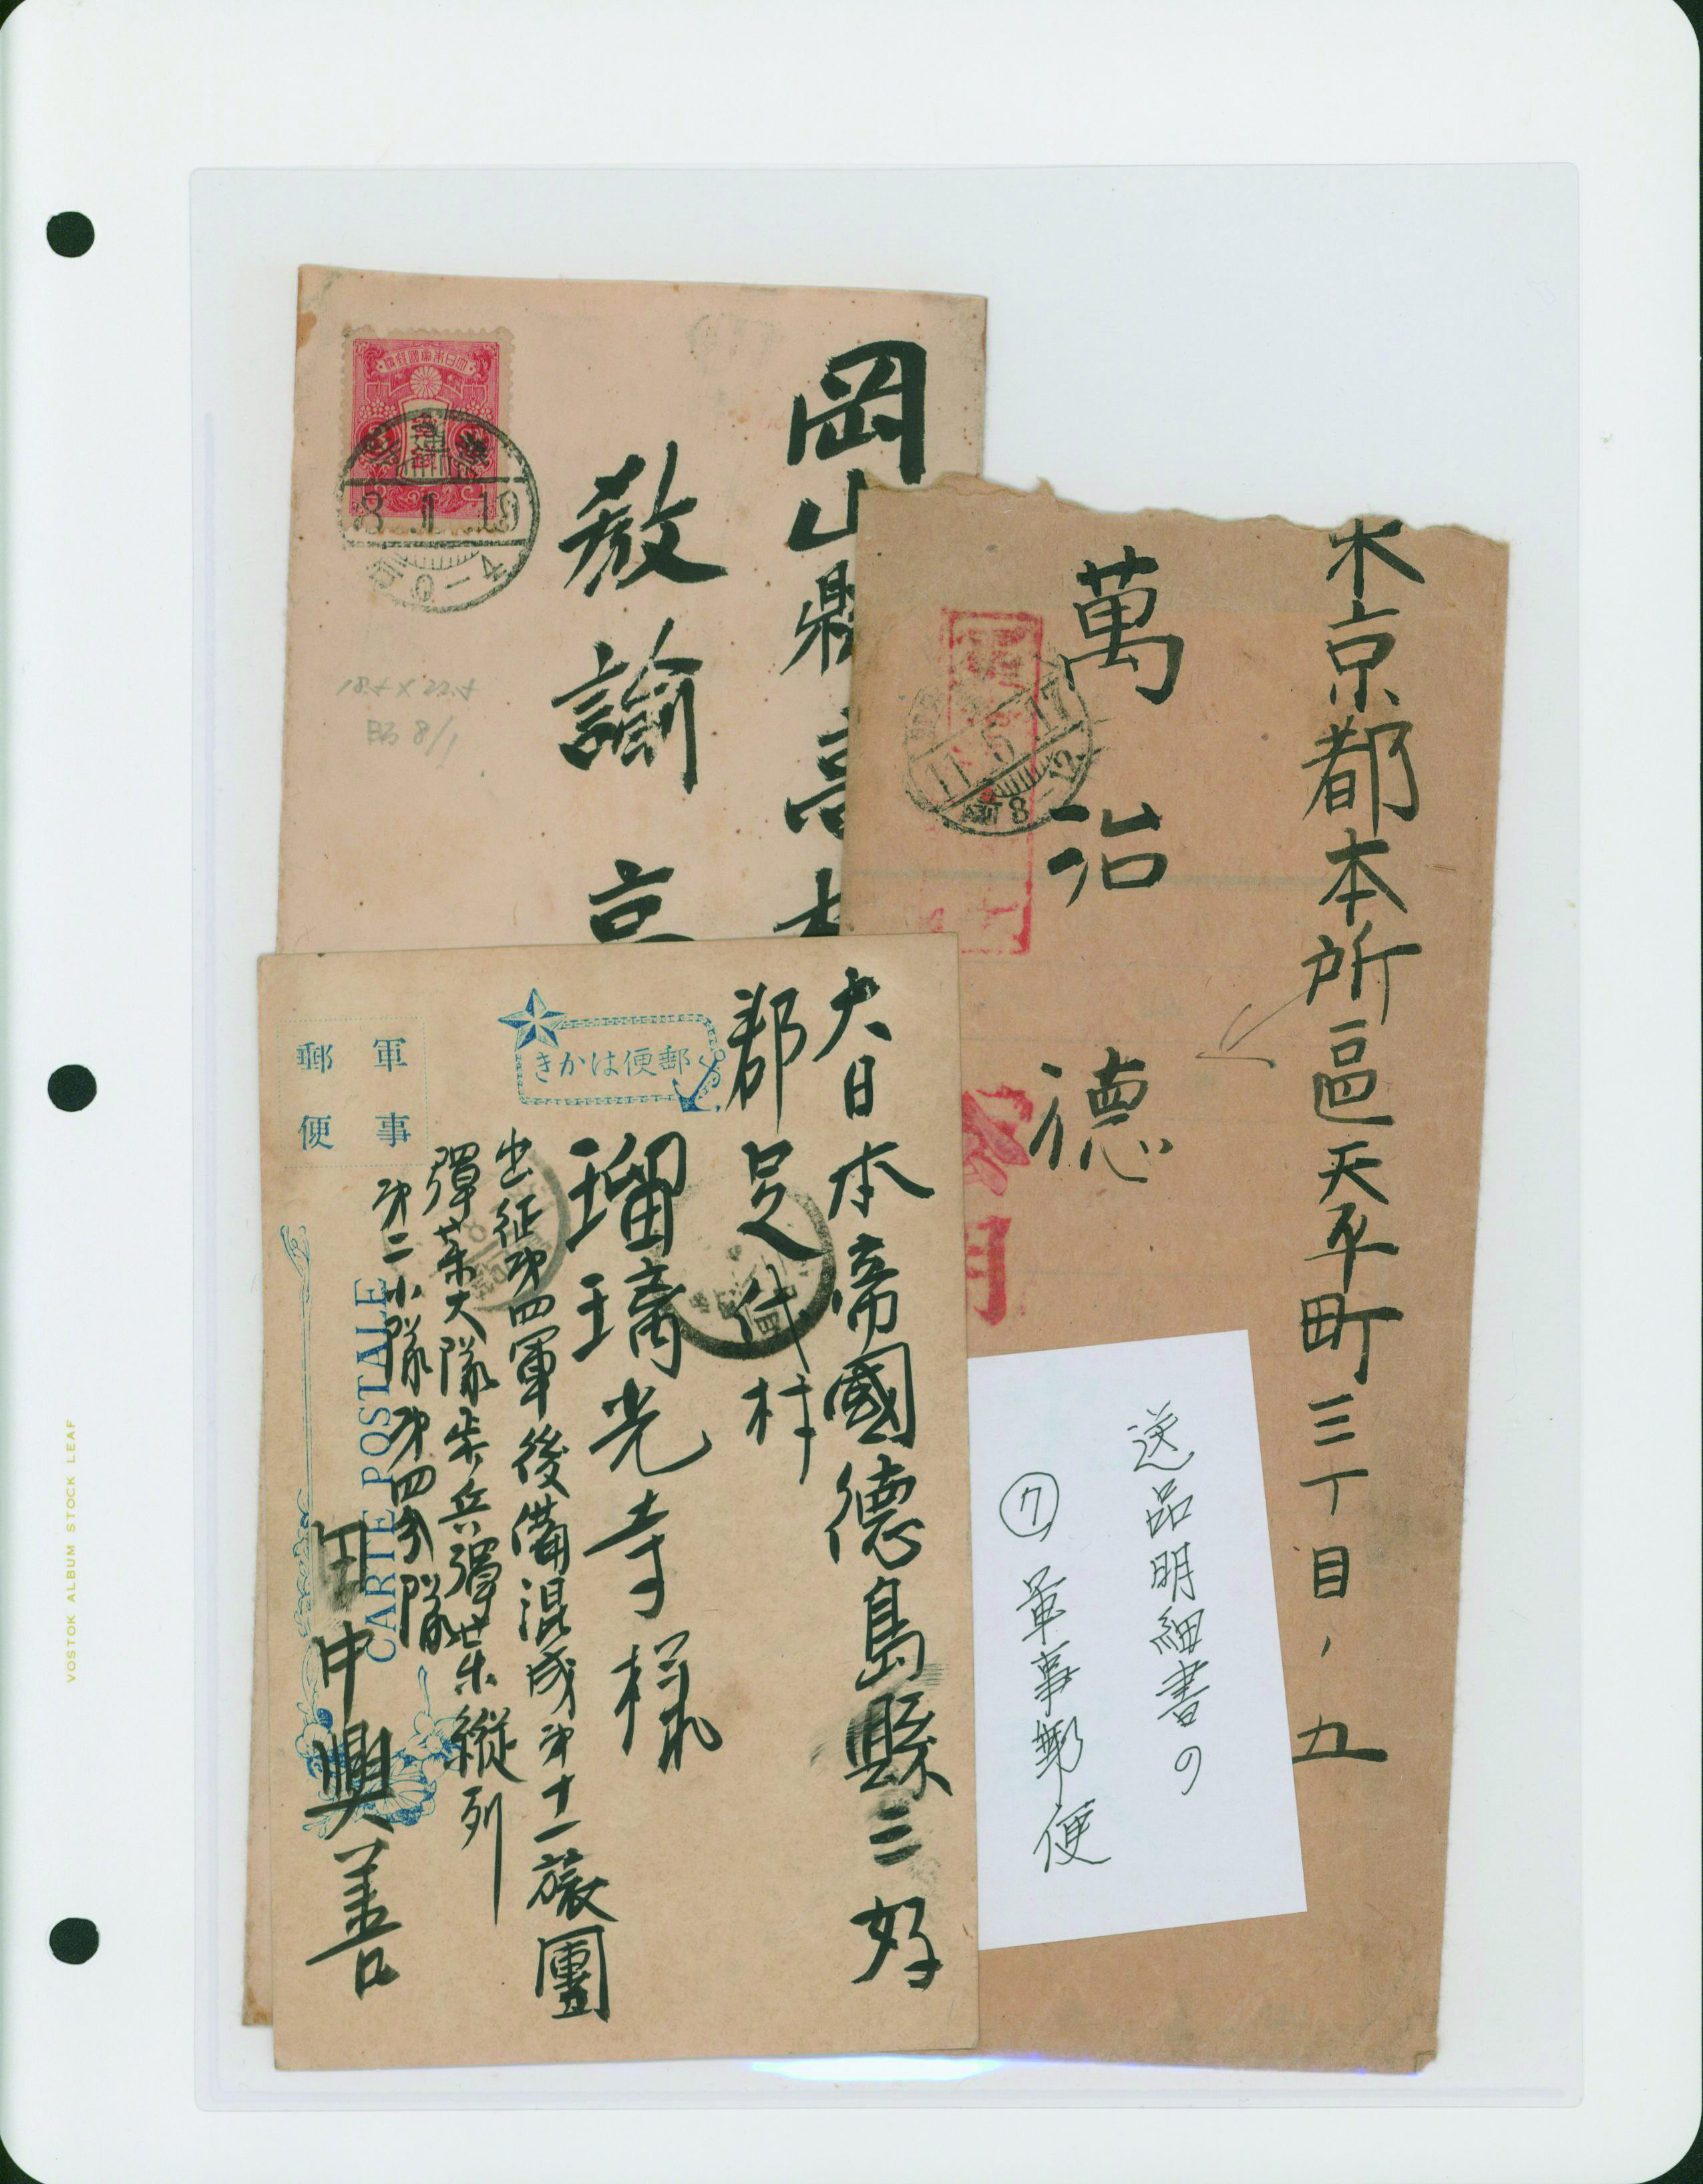 岡山縣高
教諭
18.5×22.5
昭8/1
8.1.19
東京都本所區太平町三丁目ノ五
萬治
德
11.5.17
8-12
大日本帝國德島縣三好
郡足代村
瑠璃光寺様
出征第四軍後備混成第十一旅團
彈薬大隊歩兵彈薬縦列
第二小隊第四分隊
田中興善
郵便はかき
軍事
郵便
CARTE POSTALE
送品明細書の
⑦軍事郵便
VOSTOK ALBUM STOCK LEAF